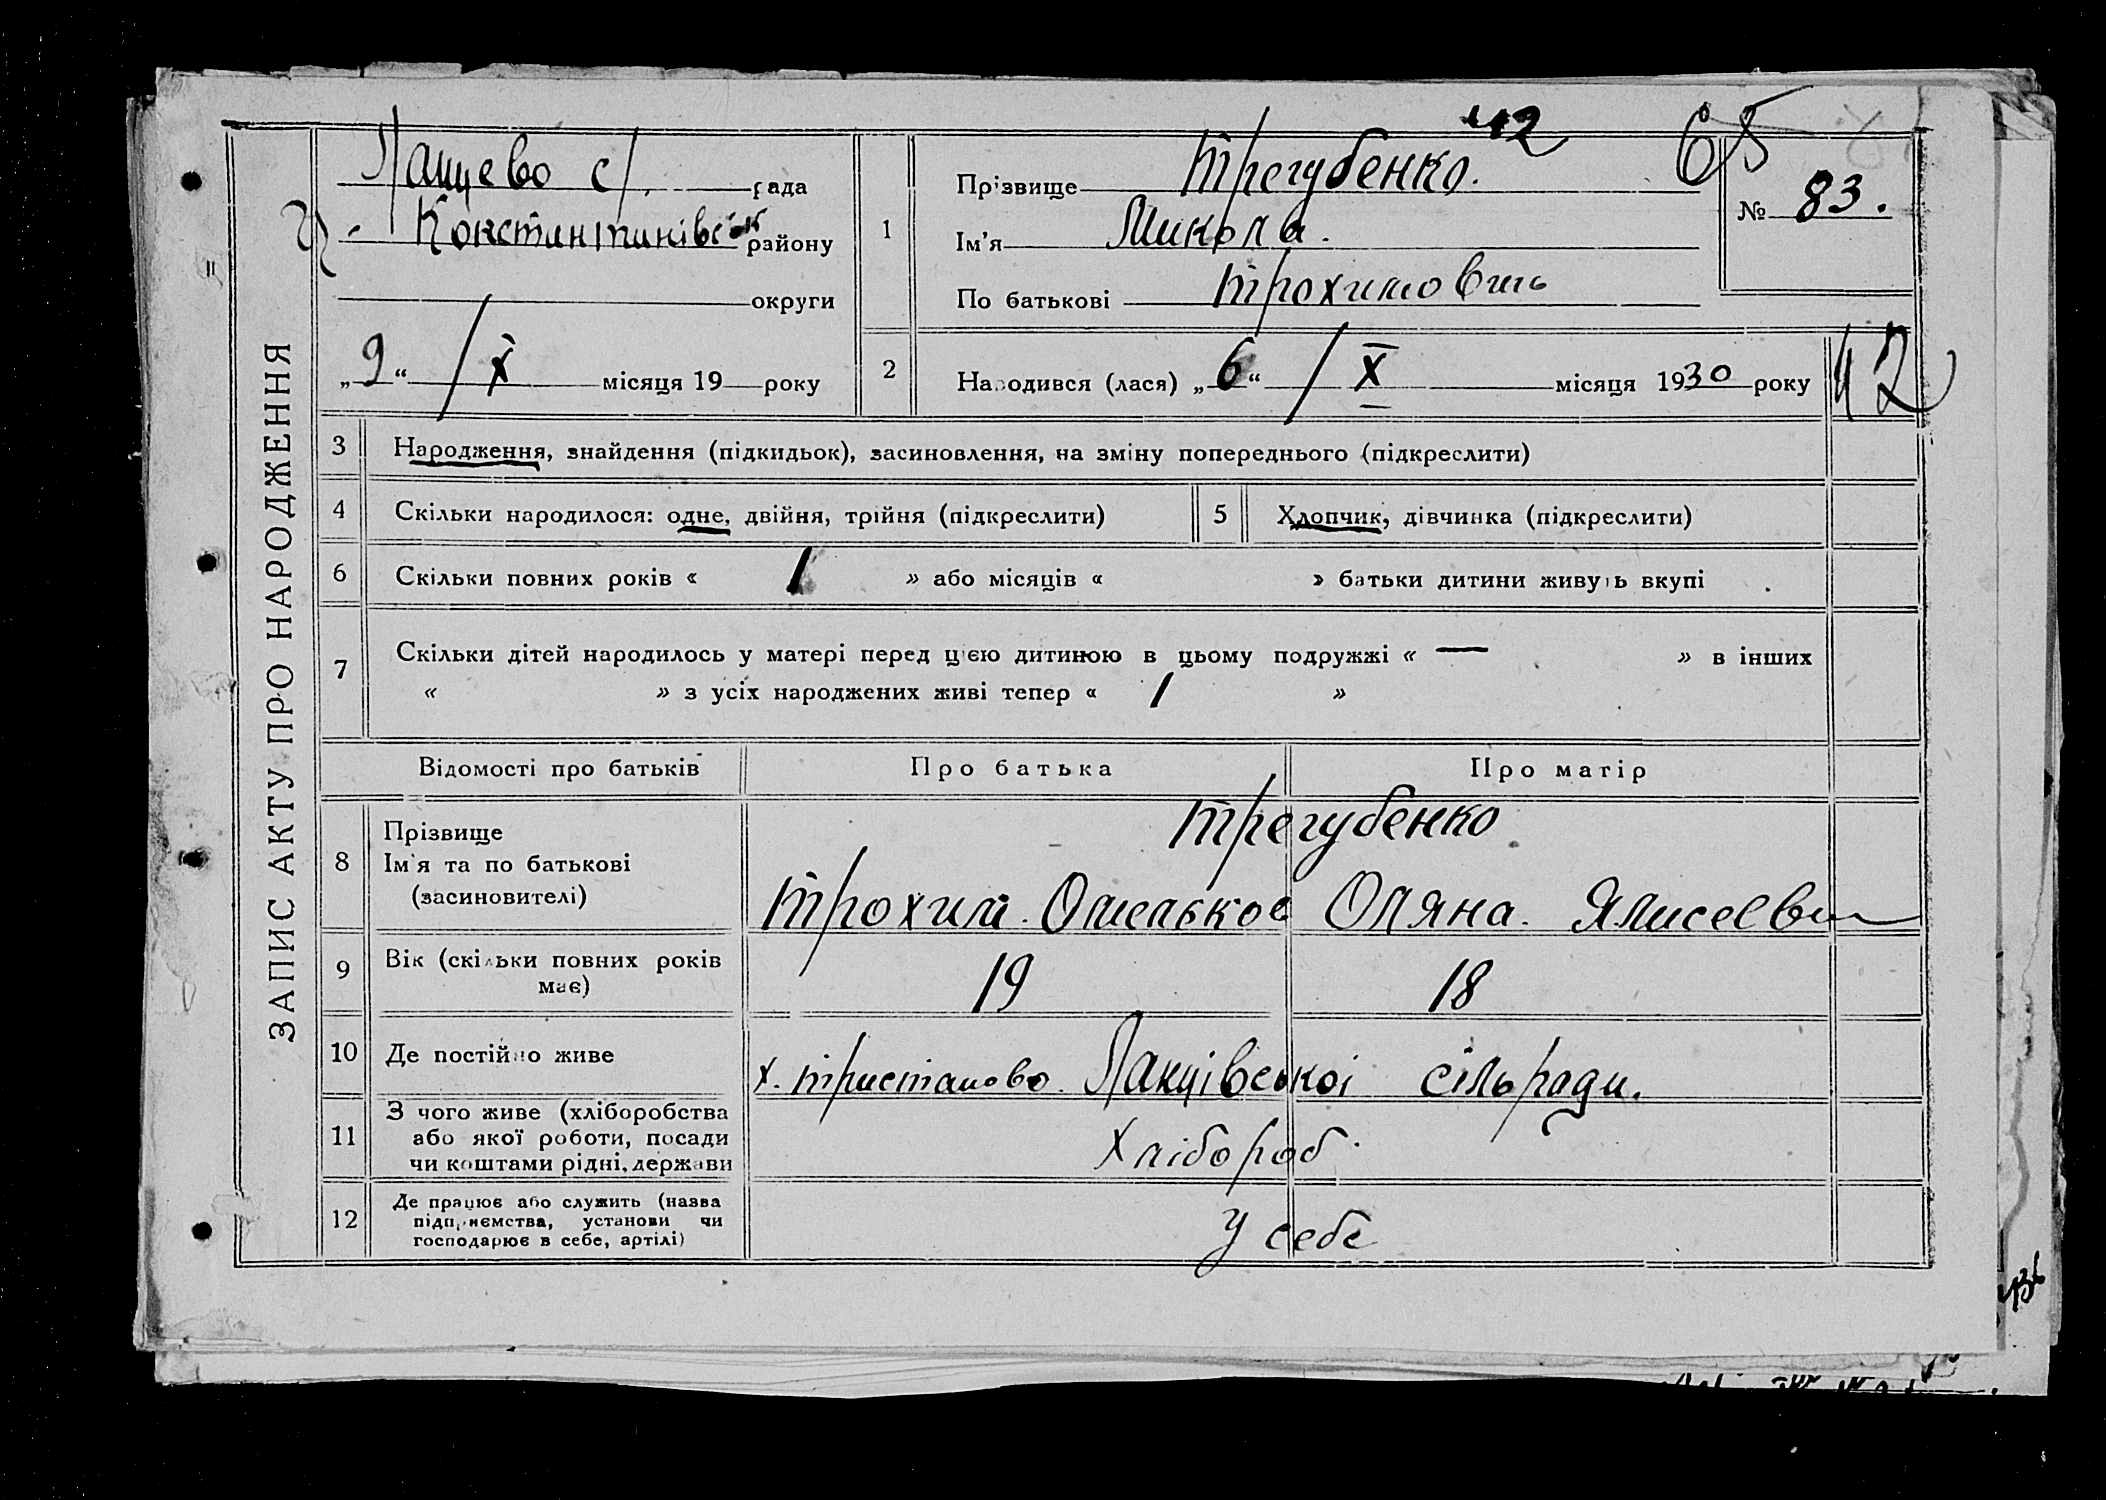 ЗАПИС АКТУ ПРО НАРОДЖЕННЯ
с/рада
Констинтинівськ району
округи
„9“ / X місяця 19 року
42
65
№ 83.
1 Прізвище Трегубенко.
Ім'я Микола.
По батькові Трохимович
2 Народився (лася) „6“ / X місяця 1930 року
42
3 Народження, знайдення (підкидьок), засиновлення, на зміну попереднього (підкреслити)
4 Скільки народилося: одне, двійня, трійня (підкреслити) 5 Хлопчик, дівчинка (підкреслити)
6 Скільки повних років « 1 » або місяців « » батьки дитини живуть вкупі
7 Скільки дітей народилось у матері перед цією дитиною в цьому подружжі « — » в інших
« » з усіх народжених живі тепер « 1 »
Відомості про батьків Про батька Про матір
8 Прізвище
Ім'я та по батькові
(засиновителі)
Трегубенко
Трохим. Омельков Оляна. Ялисеевн
9 Вік (скільки повних років
має)
19 18
10 Де постійно живе
х. Пристаново. Ланцівської сільради.
11 З чого живе (хліборобства
або якої роботи, посади
чи коштами рідні, держави
Хлібороб.
12 Де працює або служить (назва
підприємства, установи чи
господарює в себе, артілі)
у себе